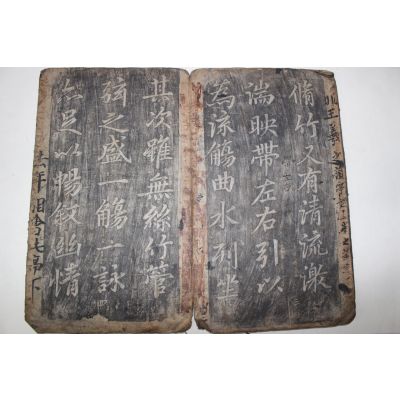 此王羲之
脩竹又有清流激
湍映帶左右引以
為流觴曲水列坐
其次雖無絲竹管
弦之盛一觴一詠
亦足以暢敘幽情